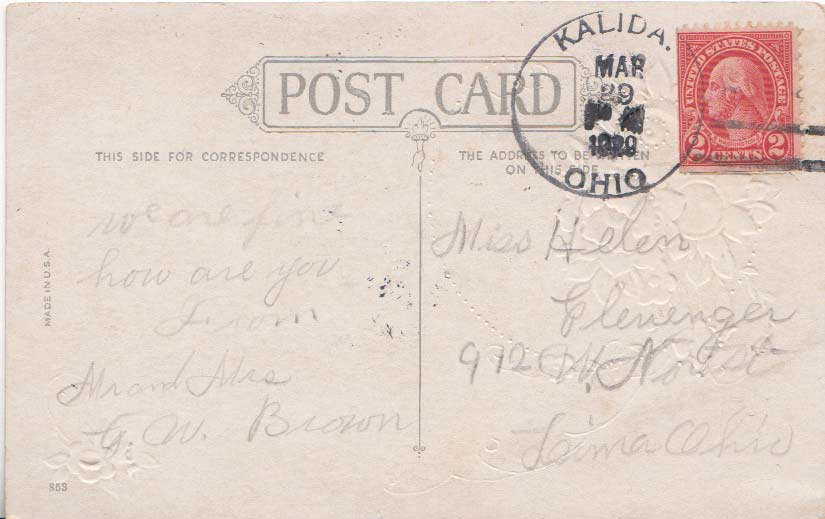 POST CARD
KALIDA.
MAR
29
1929
OHIO
UNITED STATES POSTAGE
2 CENTS 2
THIS SIDE FOR CORRESPONDENCE
THE ADDRESS TO BE WRITTEN
ON THIS SIDE
MADE IN U.S.A.
we are fine
how are you
From
Mr and Mrs
G. W. Brown
853
Miss Helen
Clevenger
972 W. North St
Lima Ohio